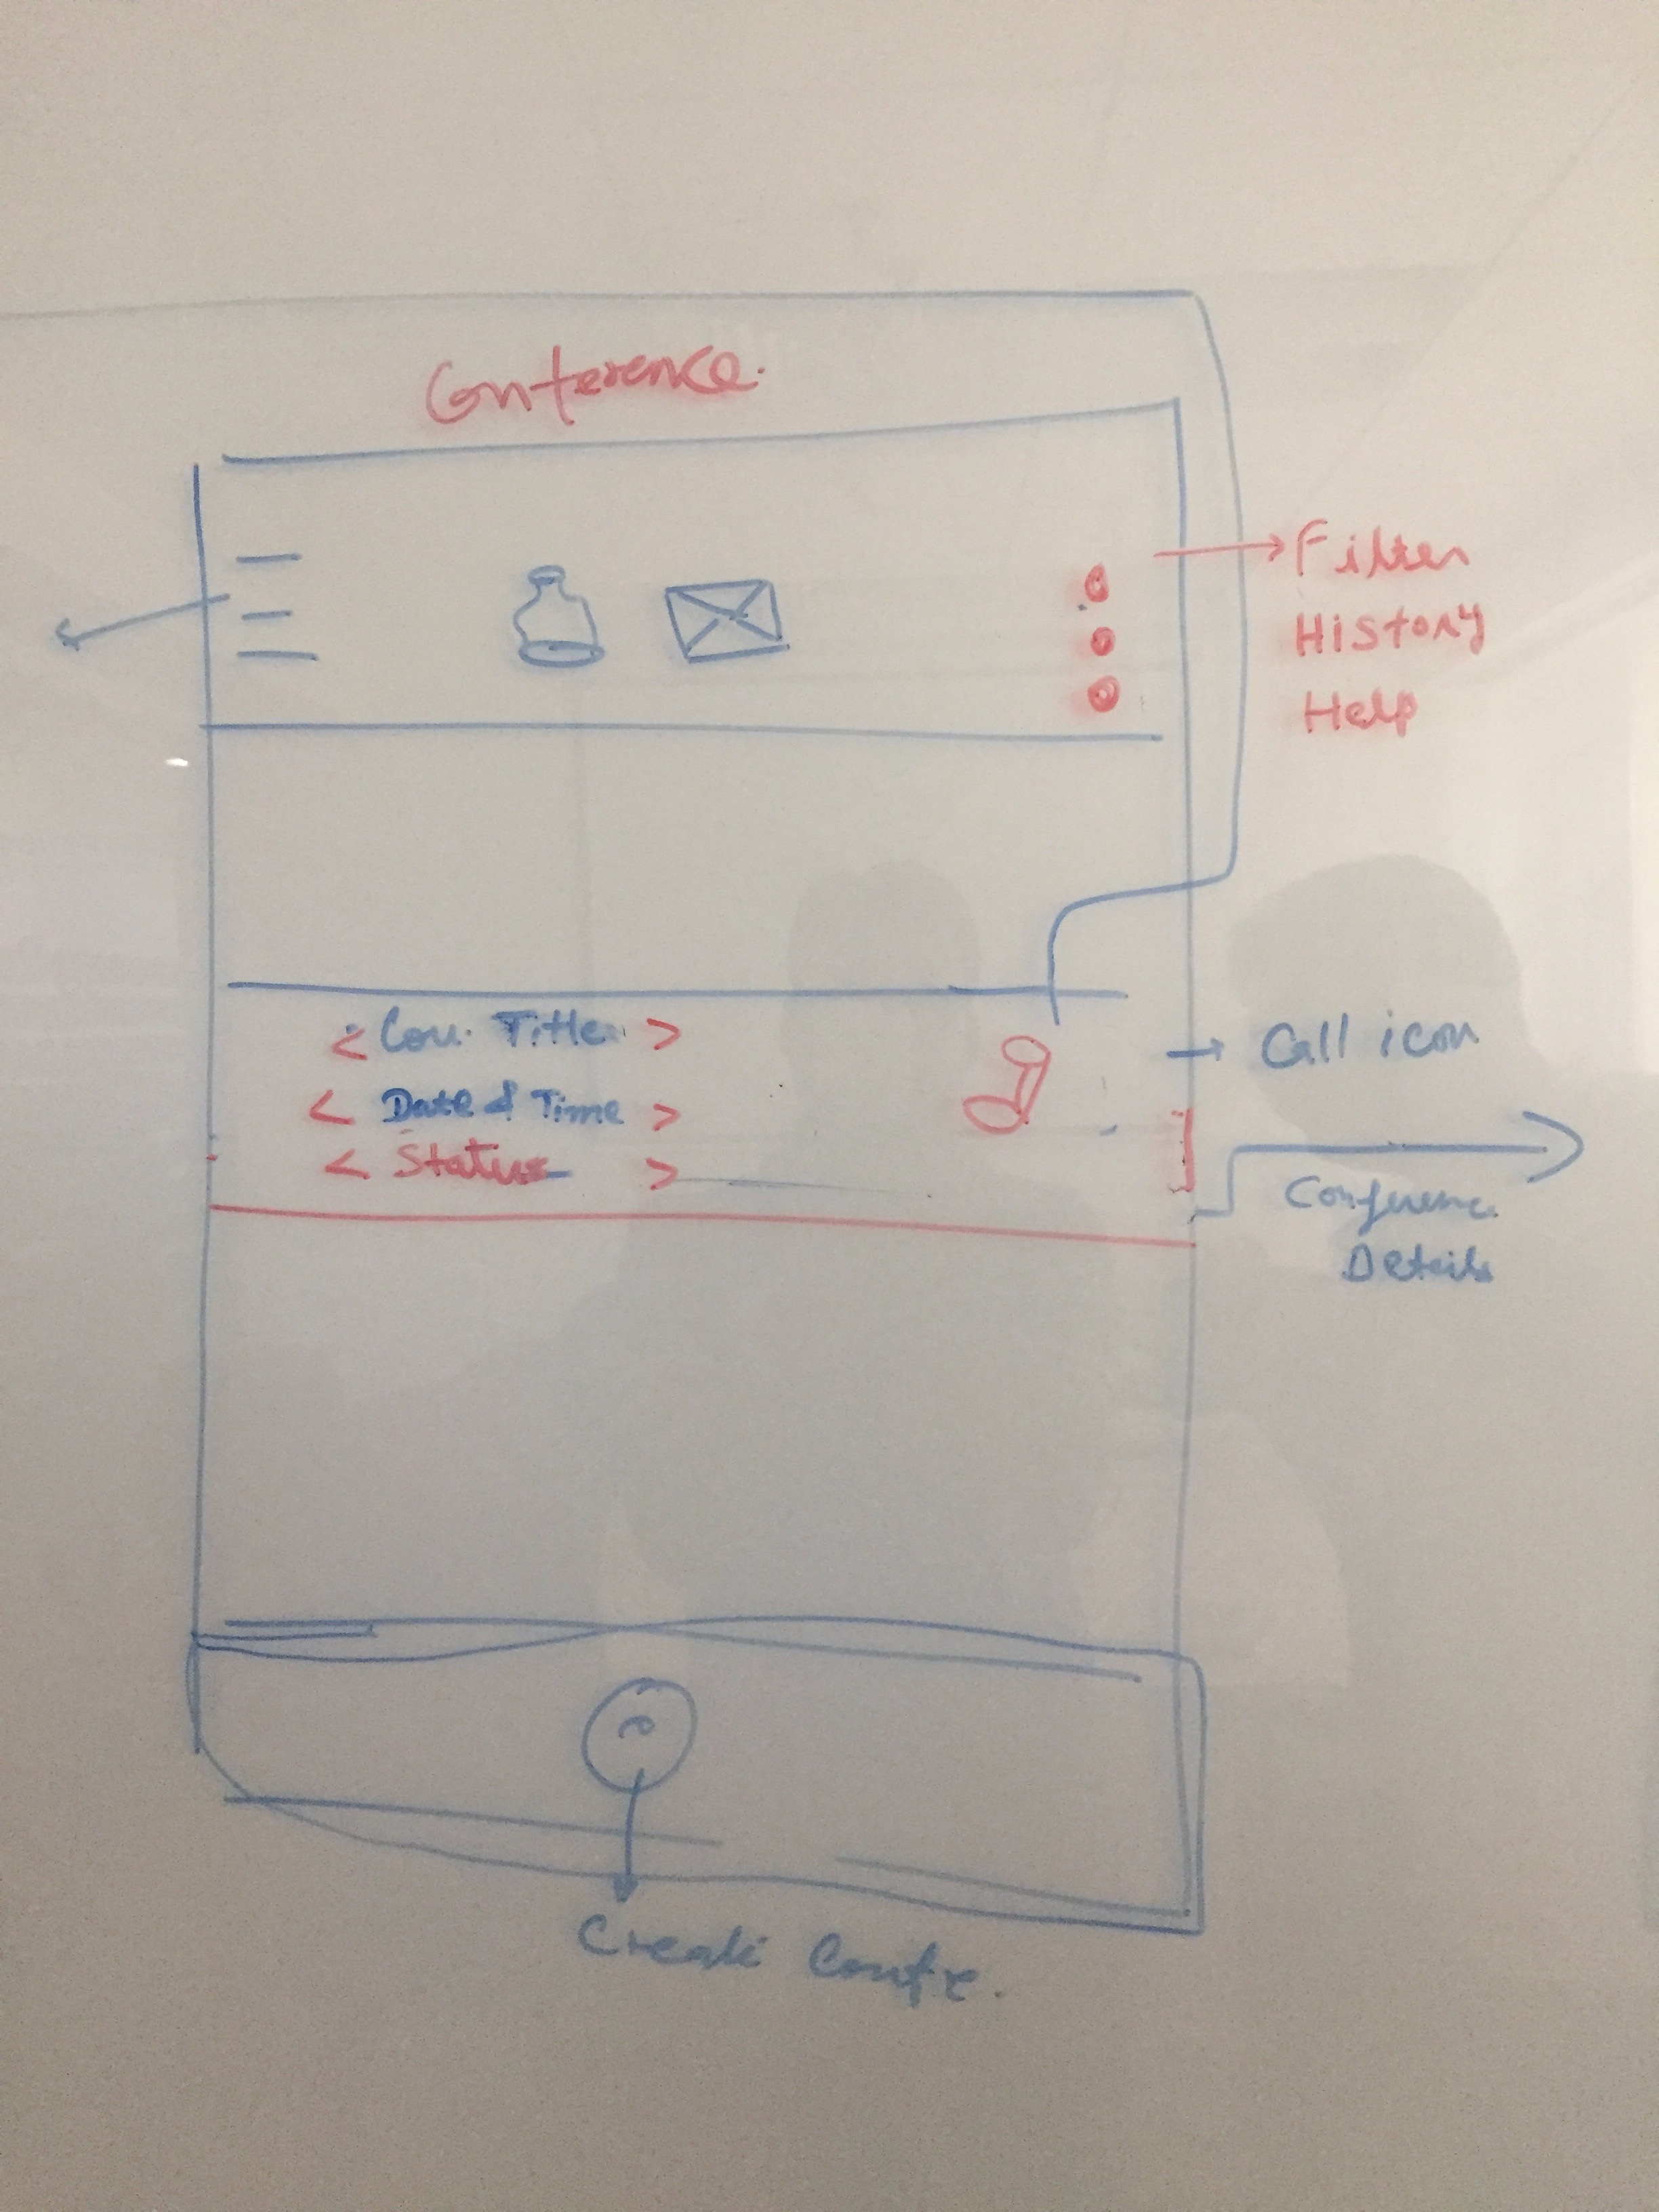 Conference.
Filter
History
Help
< Con. Title >
Call icon
< Date & Time >
< Status >
Conference
Details
Create Confe.